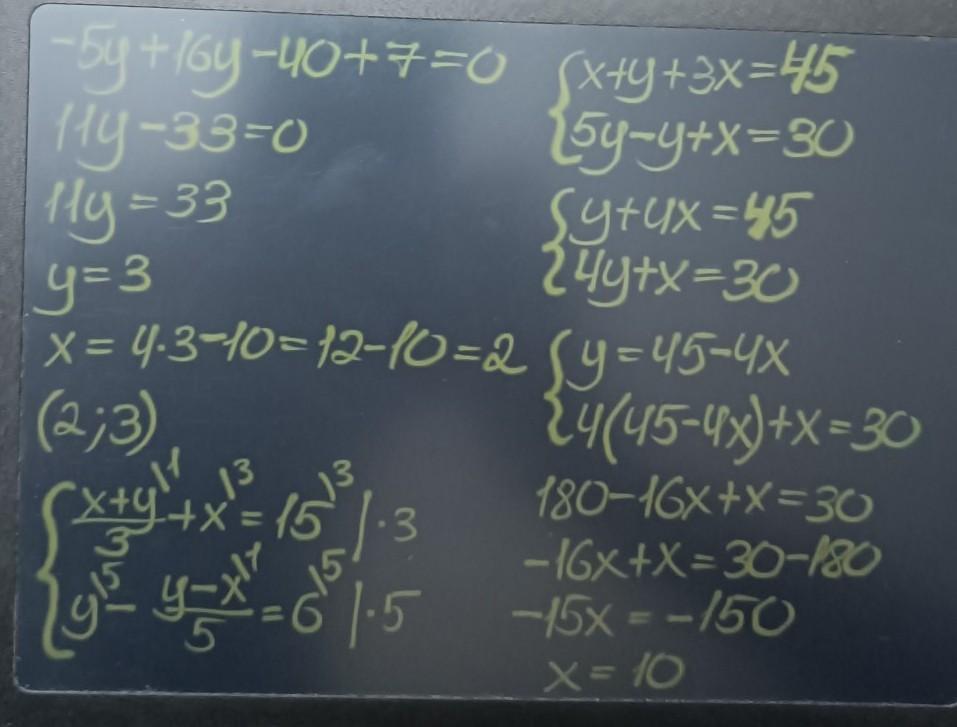 -5y+16y-40+7=0
11y-33=0
11y=33
y=3
x=4·3-10=12-10=2
(2;3)
{ (x+y)/3 |1 + x |3 = 15 |3 | ·3
y |5 - (y-x)/5 |1 = 6 |5 | ·5
{ x+y+3x=45
5y-y+x=30
{ y+4x=45
4y+x=30
{ y=45-4x
4(45-4x)+x=30
180-16x+x=30
-16x+x=30-180
-15x=-150
x=10